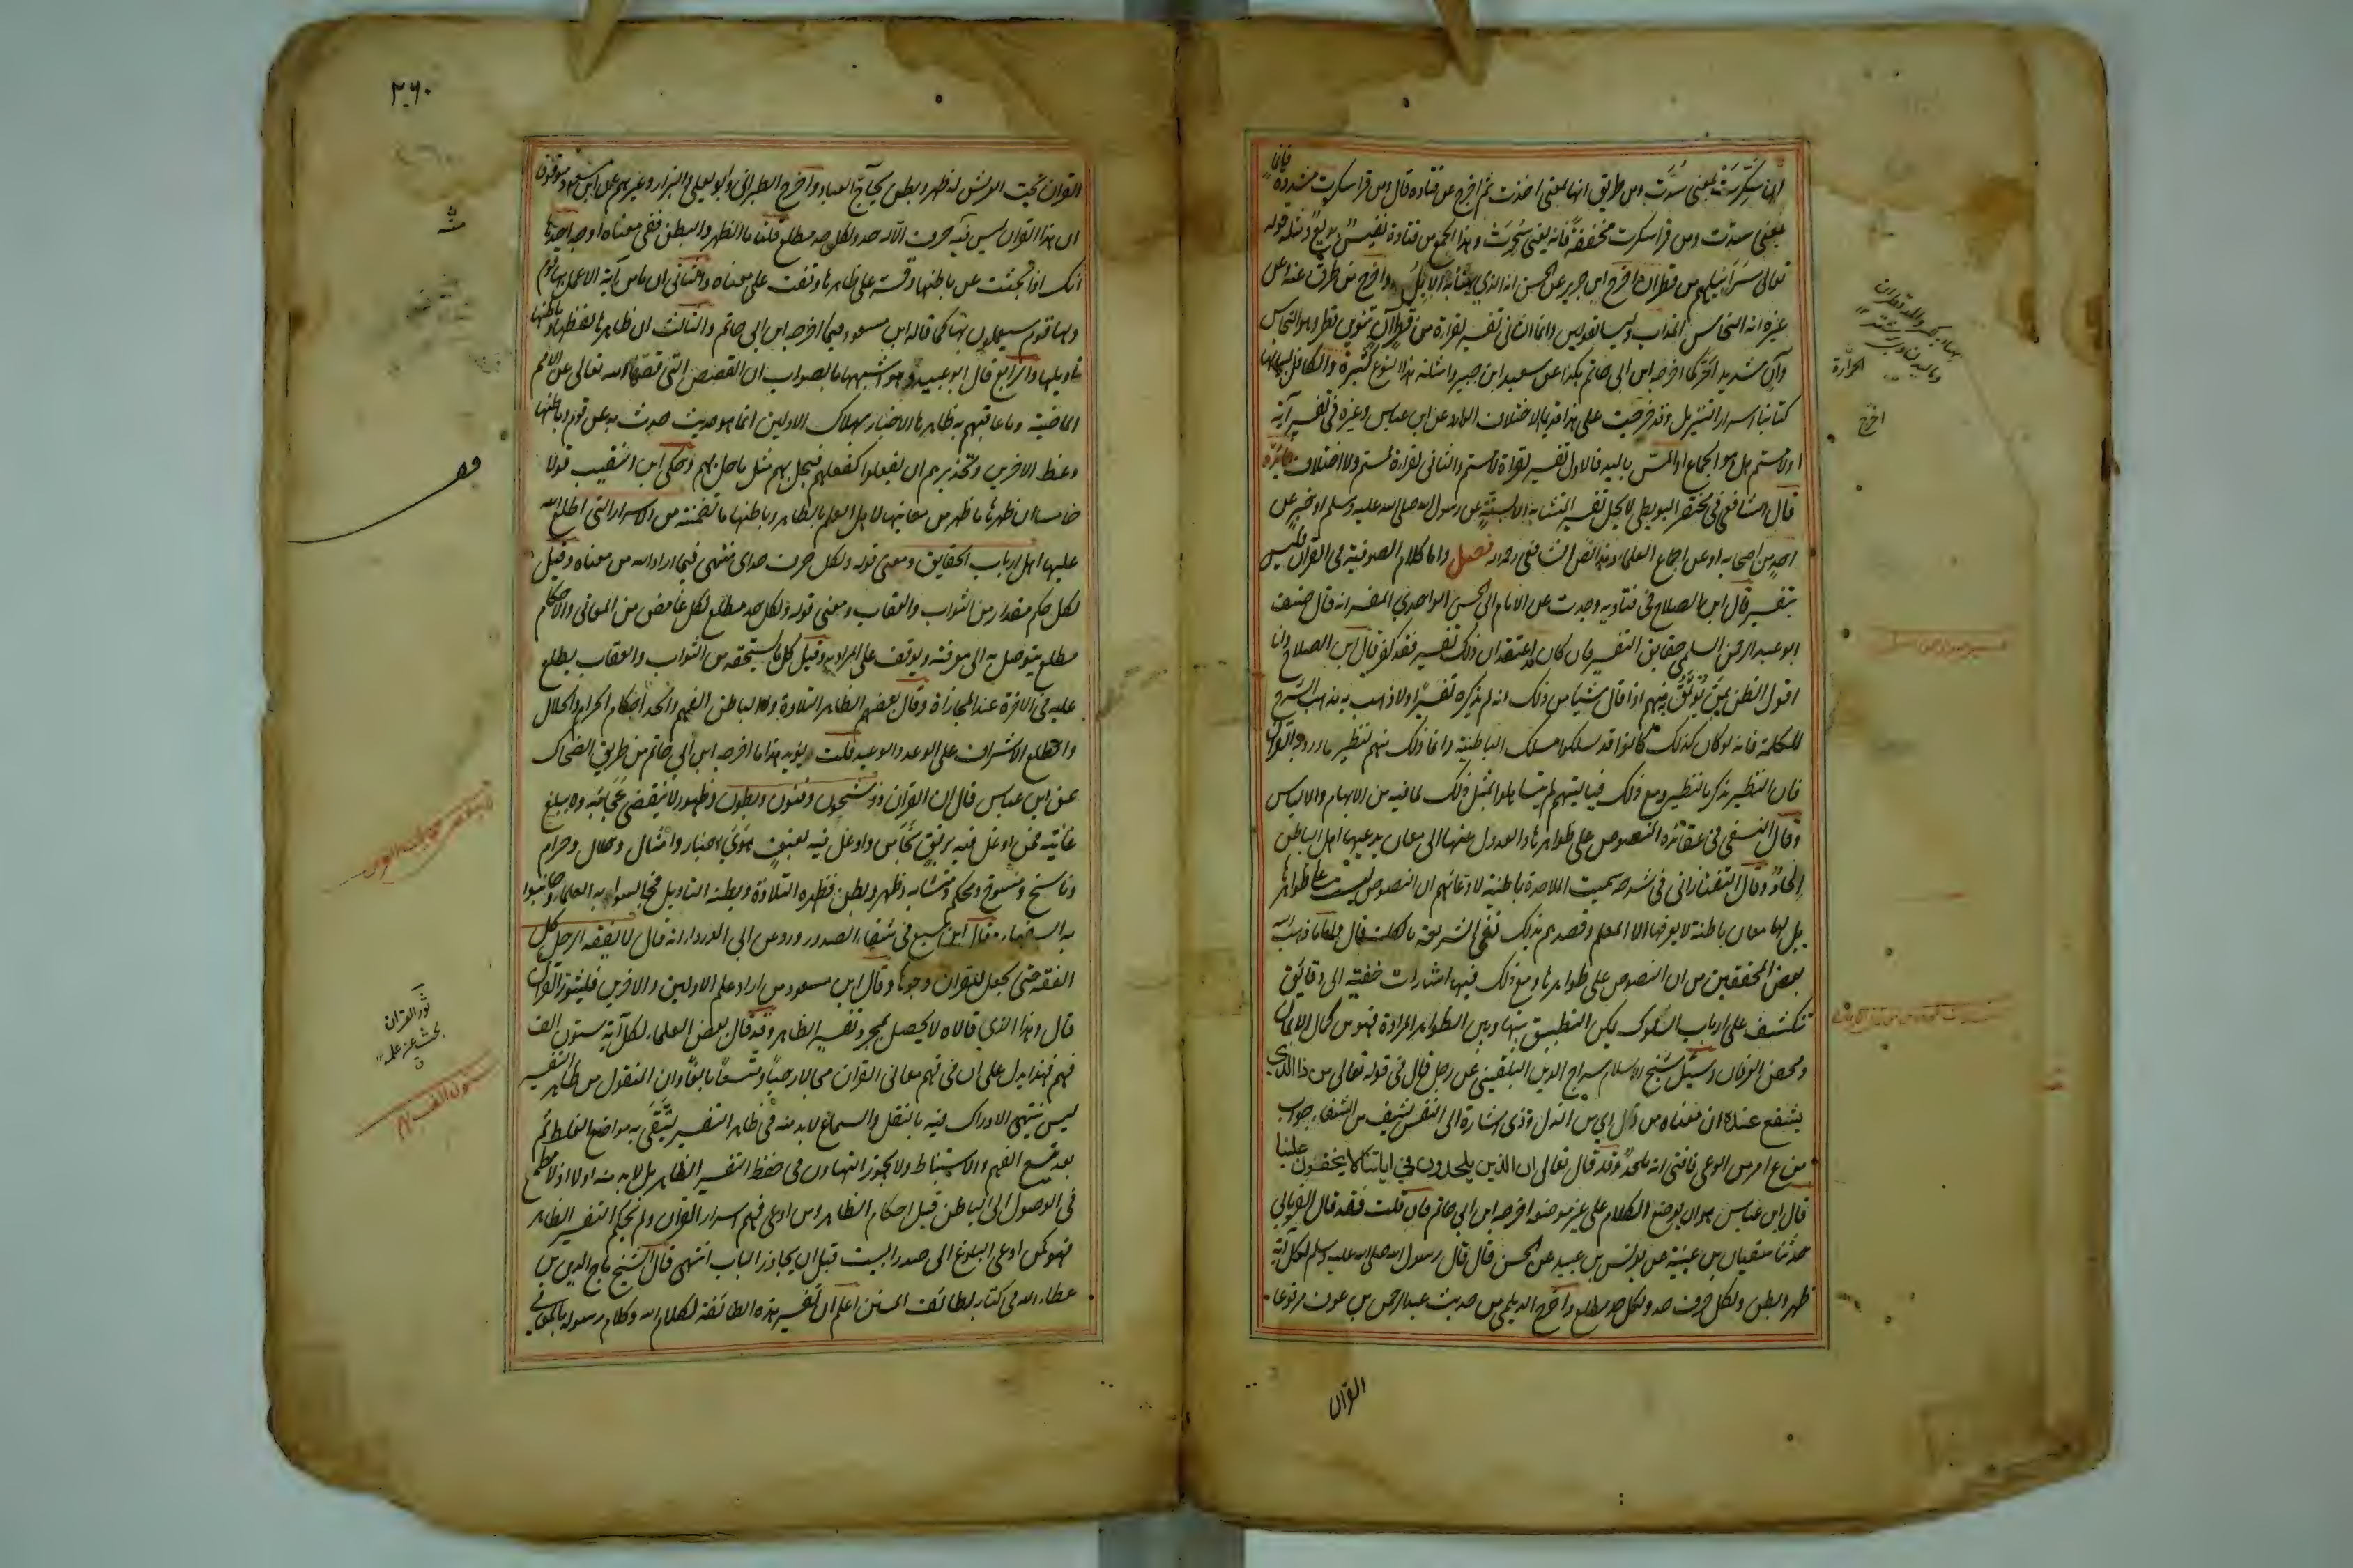 انها سُكِّرَتْ بمعنى سُدَّت ومن طريق انها بمعنى اخذت ثم اخرج عن قتاده قال من قرا سكرت مشددة فانما
يعنى سدّت ومن قرا سكرت مخففةً فانه يعنى سُحِرَت وهذا الجمع من قتادة نفيس بديع ومثله قوله
تعالى سَرَابِيلهم من قطران اخرج ابن جرير عن الحسن انه الذي يهنأبه الابِلُ واخرج من طرق عنه وعن
غيره انه النحاس المذاب وليسا بقولين وانما الثانى تفسير لقراءة من قِطْرٍآنٍ بتنوين قطر وهو النحاس
وآنٍ شديد الحر كما اخرجه ابن ابى حاتم هكذا عن سعيد ابن جبير وامثلة هذا النوع كثيرة والكافل ببيانها
كتابنا اسرار التنزيل وقد خرجت على هذا قديما الاختلاف الوارد عن ابن عباس وغيره فى تفسير آية
او لامستم هل هو الجماع او المسّ باليد فالاول تفسير لقراءة لامستم والثانى لقراءة لمستم ولا اختلاف فائدة
قال الشافعى فى مختصر البويطى لا يحل تفسير المتشابه الا بسنّةٍ عن رسول الله صلى الله عليه وسلم او خبرٍ عن
احدٍ من اصحابه او عن اجماع العلماء وهذا نص الشافعى رحمه الله فصل واما كلام الصوفية فى القران فليس
بتفسير قال ابن الصلاح فى فتاويه وجدت عن الامام ابى الحسن الواحدي المفسر انه قال صنف
ابو عبد الرحمن السلمى حقايق التفسير فان كان قد اعتقد ان ذلك تفسير فقد كفر قال ابن الصلاح وانا
اقول الظن بمن يُوثَقُ به منهم اذا قال شيئا من ذلك انه لم يذكره تفسيرًا ولا ذهب به مذهب الشرح
للكلمة فانه لو كان كذلك كانوا قد سلكوا مسلك الباطنية وانما ذلك منهم لنظير ما ورد به القرآن
فان النظير يذكر بالنظير ومع ذلك فياليتهم لم يتساهلوا بمثل ذلك لما فيه من الابهام والالباس
وقال النسفى فى عقائده النصوص على ظواهرها والعدول عنها الى معان يدعيها اهل الباطن
الحادٌ وقال التفتازانى فى شرحه سميت الملاحدة باطنية لادعائهم ان النصوص ليست على ظواهرها
بل لها معان باطنة لا يعرفها الا المعلم وقصدهم بذلك نفى الشريعة بالكلية قال واما ما ذهب اليه
بعض المحققين من ان النصوص على ظواهرها ومع ذلك فيها اشارات خفية الى دقايق
تنكشف على ارباب السلوك يمكن التطبيق بينها وبين الظواهر المرادة فهو من كمال الايمان
ومحض العرفان وسئل شيخ الاسلام سراج الدين البلقينى عن رجل قال فى قوله تعالى من ذا الذي
يشفع عنده ان معناه من ذل اي من الذل وذى اشارة الى النفس يشف من الشفاء جواب
من ع امر من الوعى فافتى انه ملحد وقد قال تعالى ان الذين يلحدون في اياتنا لا يخفون علينا
قال ابن عباس هو ان يوضع الكلام على غير موضعه اخرجه ابن ابى حاتم فان قلت فقد قال الفريابى
حدثنا سفيان بن عيينة عن يونس بن عبيد عن الحسن قال قال رسول الله صلى الله عليه وسلم لكل آية
ظهر وبطن ولكل حرف حد ولكل حد مطلع واخرج الديلمى من حديث عبد الرحمن بن عوف مرفوعا
القرآن
الحرارة
اخرج
٣٦٠
القران تحت العرش له ظهر وبطن يحاجّ العباد واخرج الطبرانى وابو يعلى والبزار وغيرهم عن ابن مسعود موقوفا
ان هذا القرآن ليس منه حرف الا له حد ولكل حد مطلع قلت اما الظهر والبطن ففى معناه اوجه احدها
انك اذا بحثت عن باطنها وقسته على ظاهرها وقفت على معناه والثانى ان ما من آية الا عمل بها قوم
ولها قوم سيعملون بها كما قاله ابن مسعود فيما اخرجه ابن ابى حاتم والثالث ان ظاهرها لفظها وباطنها
تاويلها والرابع قال ابو عبيد وهو اشبهها بالصواب ان القصص التى قصّها الله تعالى عن الامم
الماضية وما عاقبهم به ظاهرها الاخبار بهلاك الاولين انما هو حديث حدث به عن قوم وباطنها
وعظ الاخرين وتحذيرهم ان يفعلوا كفعلهم فيحل بهم مثل ما حل بهم وحكى ابن النقيب قولا
خامسا ان ظهرها ما ظهر من معانيها لاهل العلم بالظاهر وباطنها ما تضمنته من الاسرار التى اطلع الله
عليها اهل ارباب الحقايق ومعنى قوله ولكل حرف حد اى منتهى فيما اراد الله من معناه وقيل
لكل حكم مقدار من الثواب والعقاب ومعنى قوله ولكل حد مطلع لكل غامض من المعانى والاحكام
مطلع يتوصل به الى معرفته ويوقف على المراد به وقيل كل ما يستحقه من الثواب والعقاب يطلع
عليه فى الاخرة عند المجازاة وقال بعضهم الظاهر التلاوة والباطن الفهم والحد احكام الحرام والحلال
والمطلع الاشراف على الوعد والوعيد قلت يؤيد هذا ما اخرجه ابن ابى حاتم من طريق الضحاك
عن ابن عباس قال ان القرآن ذو شجون وفنون وبطون وظهور لا ينقضى عجائبه ولا يبلغ
غايته فمن اوغل فيه برفق نجا ومن اوغل فيه بعنفٍ هَوَي اخبار وامثال وحلال وحرام
وناسخ ومنسوخ ومحكم ومتشابه وظهر وبطن فظهره التلاوة وبطنه التاويل فجالسوا به العلماء وجانبوا
به السفهاء وقال ابن سبع فى شفاء الصدور ورد عن ابى الدرداء انه قال لا يفقه الرجل كل
الفقه حتى يجعل للقران وجوها وقال ابن مسعود من اراد علم الاولين والاخرين فليثور القرآن
قال وهذا الذي قالاه لا يحصل بمجرد تفسير الظاهر وقد قال بعض العلماء لكل آية ستون الف
فهم فهذا يدل على ان فى فهم معانى القران مجالا رحبا ومتسعا بالغا وان المنقول من ظاهر التفسير
ليس ينتهى الادراك فيه بالنقل والسماع لا بد منه فى ظاهر التفسير ليُتَّقَى به مواضع الغلط ثم
بعد ذلك يتسع الفهم والاستنباط ولا يجوز التهاون فى حفظ التفسير الظاهر بل لابد منه اولا اذ لا مطمع
فى الوصول الى الباطن قبل احكام الظاهر ومن ادعى فهم اسرار القرآن ولم يحكم التفسير الظاهر
فهو كمن ادعى البلوغ الى صدر البيت قبل ان يجاوز الباب انتهى قال الشيخ تاج الدين بن
عطاء الله فى كتاب لطائف المنن اعلم ان تفسير هذه الطائفة لكلام الله وكلام رسوله بالمعانى
ثور القران
بحث عن علمه
ستون الف